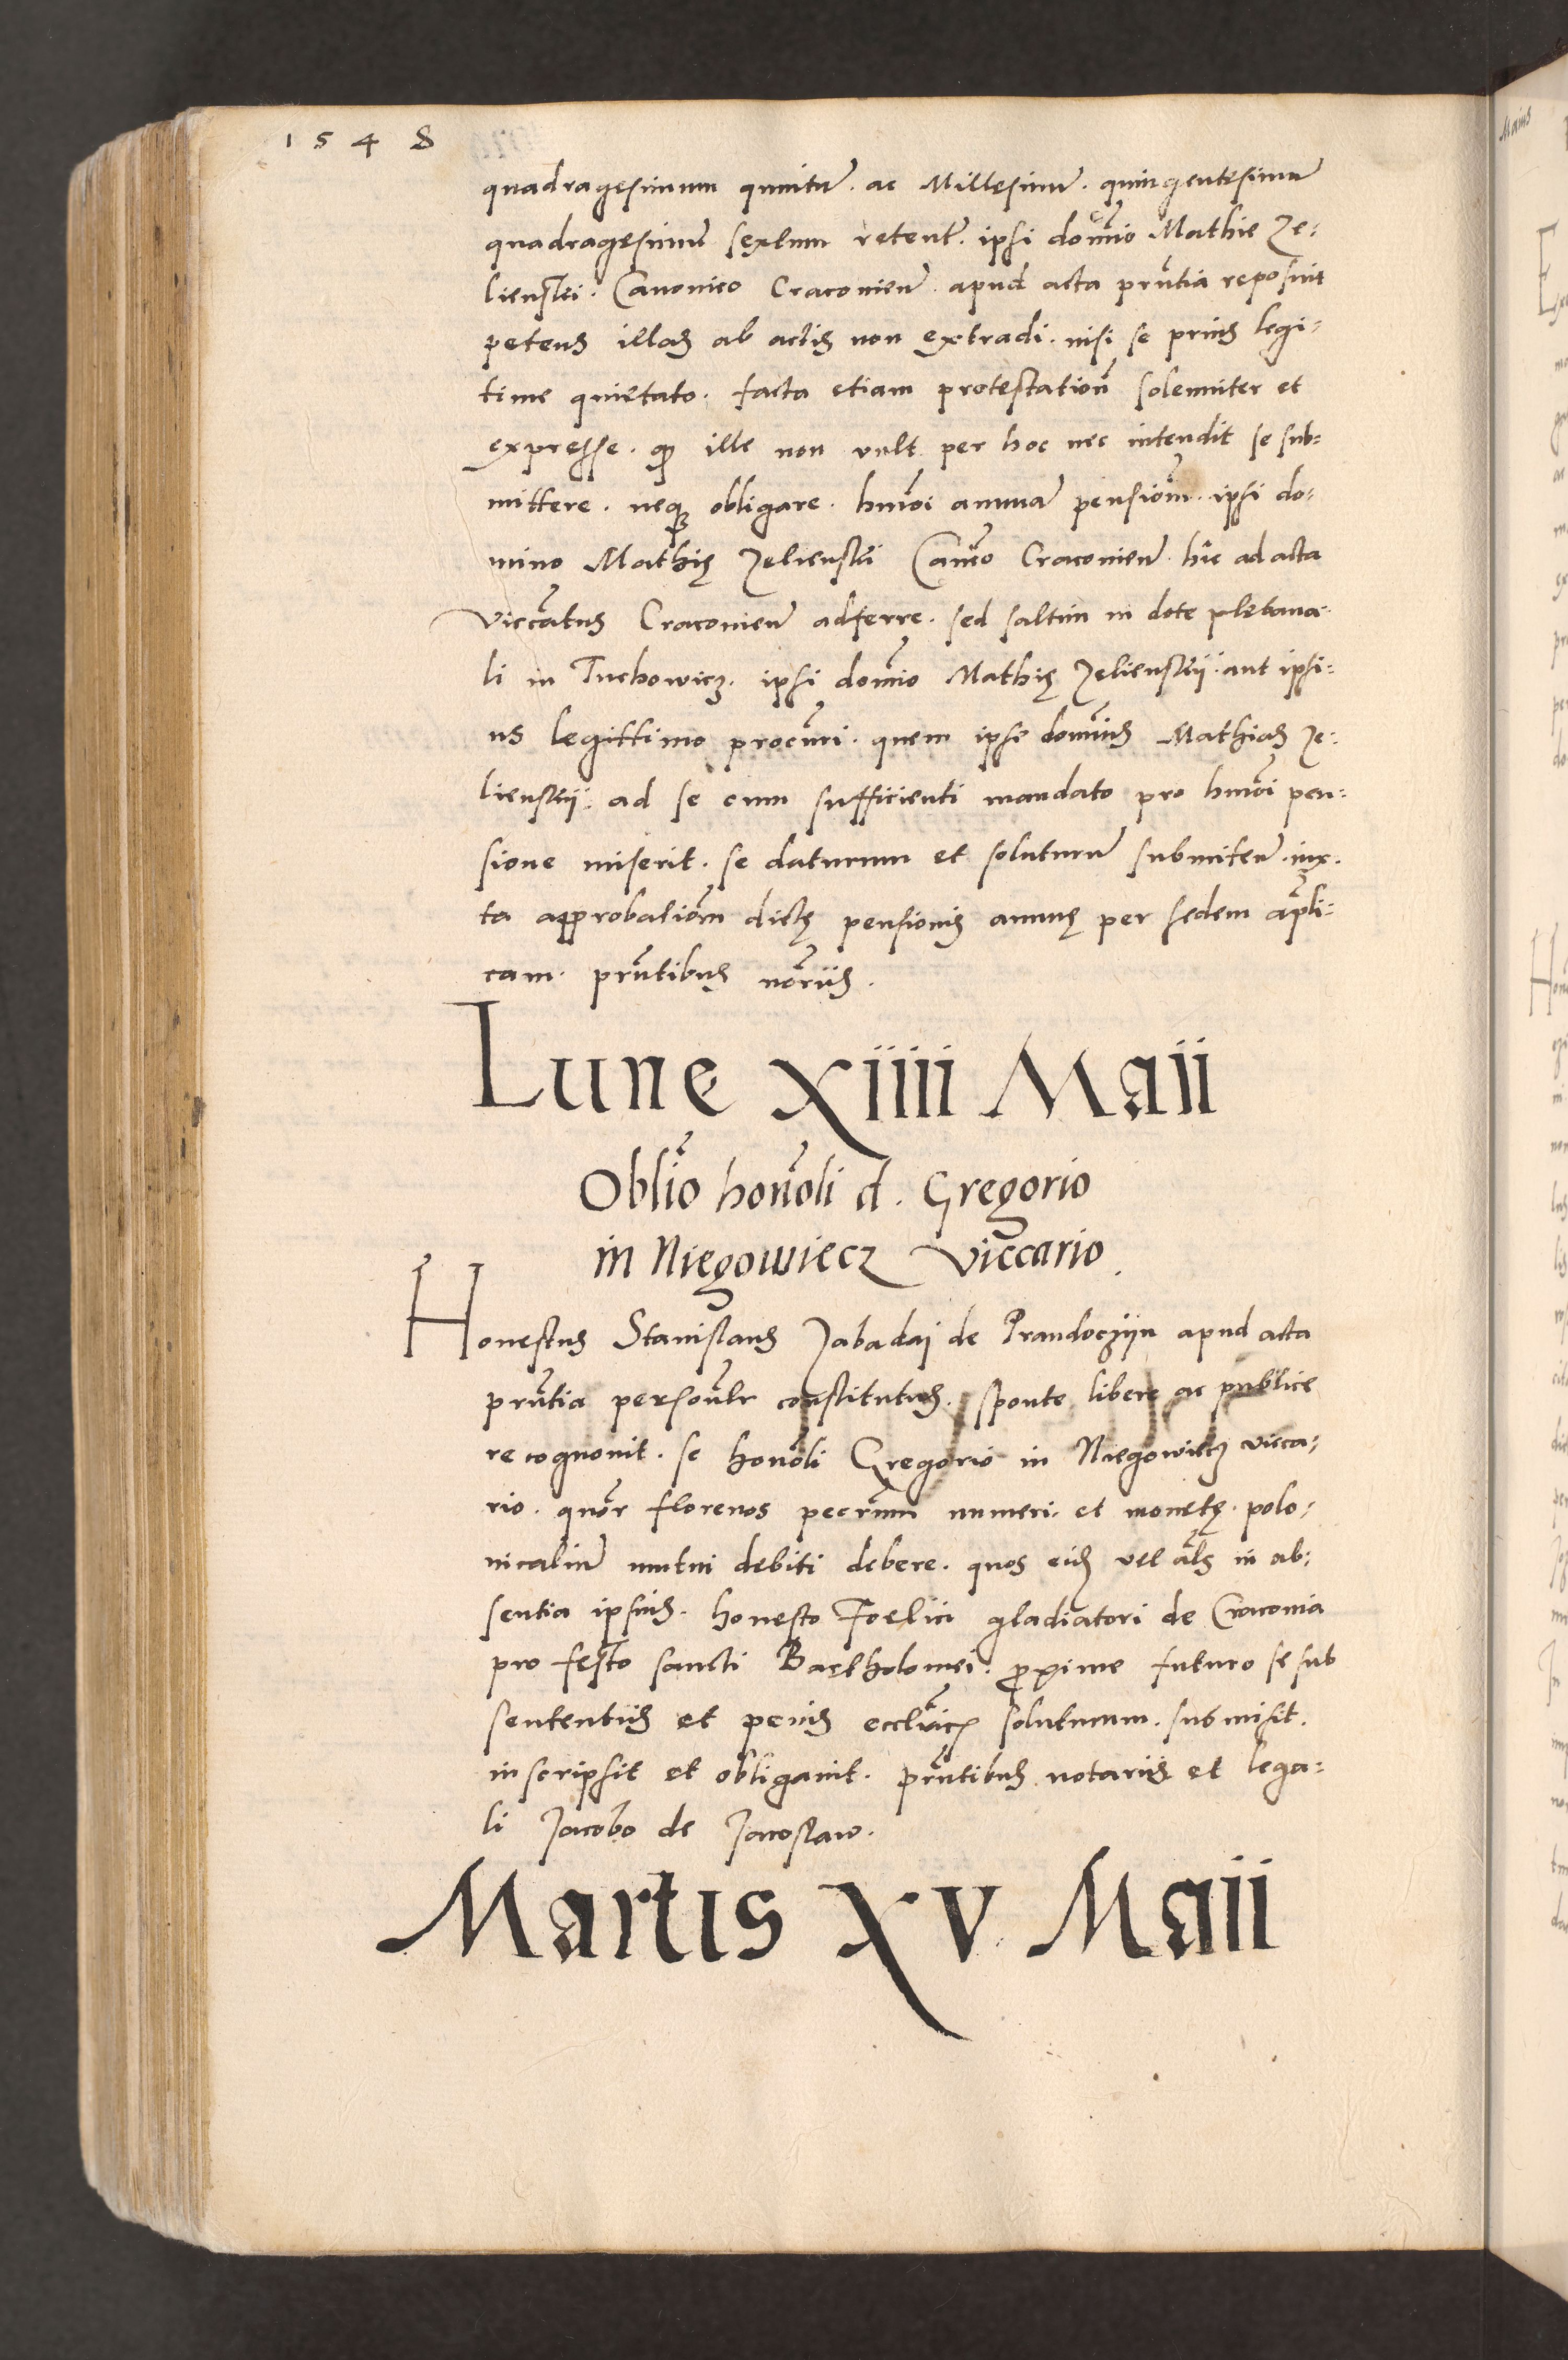 1548
quadragesimum quintũ. ac Millesimũ. quingentesimũ
quadragesimũ sextum retent̃. ipsi dom̃io Mathie Ze-
lienski. Canonico Cracovieñ. apud acta pñtia reposuit
petens illas ab actis non extradi. nisi se prius legi-
time quietato. facta etiam protestatioñ solenniter et
expresse. ꝙ ille non vult per hoc nec intendit se sub-
mittere. neqꝫ obligare. hm̃oi annuã pensioñm. ipsi do-
mino Mathię Zelienski Cañco Cracovieñ. hic ad acta
Viccatus Cracovieñ adferre. sed saltim in dote plebana-
li in Tuchowicz. ipsi dom̃io Mathię Zelienskij. aut ipsi-
us legittimo procũri. quem ipse dom̃nus Mathias Ze-
lienskij. ad se cum sufficienti mandato pro hm̃oi pen-
sione miserit. se daturum et soluturũ submiteñ. iux-
ta approbatiõm dictę pensionis annuę per sedem ap̃li-
cam. pr̃ntibus nor̃iis.
Lune xiiii Maii
Obliõ honõli d. Gregorio
in Niegowiecz viccario.
Honestus Stanislaus Zabadaj de Prandoczijn apud acta
pr̃ntia persoñlr constitutus. sponte libere ac publice
recognovit. se honõli Gregorio in Niegowiecz vicca-
rio. quor̃ florenos pecc̃um numeri. et monetę. polo-
nicaliũ mutui debiti debere. quos eid̃ vel al̃s in ab-
sentia ipsius. honesto Foelici gladiatori de Cracovia
pro festo sancti Bartholomei. ꝓxime futuro se sub
sententiis et penis eccl̃iacis soluturum. submisit.
inscripsit et obligavit. pr̃ntibus notariis et lega-
li Jacobo de Jaroslaw.
Martis xv Maii